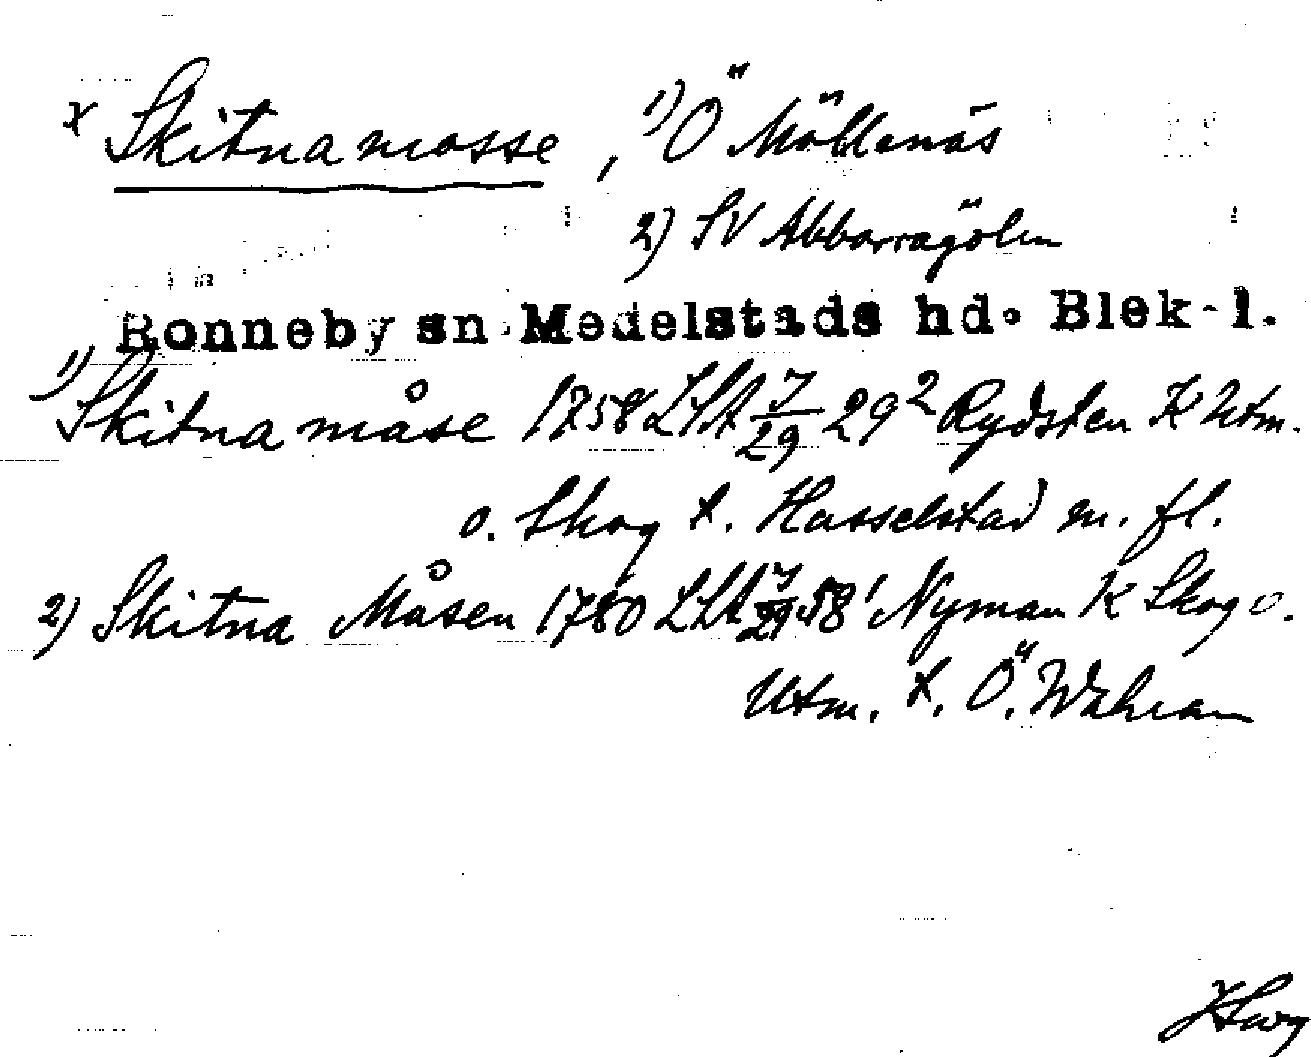 x Skitnamosse, 1) Ö Möllenäs
2) SV Abborragölen
Ronneby sn Medelstads hd. Blek. l.
1) Skitna måse 1758 LSA J/29 29² Rydsten K Utm.
o. Skog t. Hasselstad m. fl.
2) Skitna Måsen 1780 LSA J/29 58¹ Nyman K Skog o.
Utm. t. Ö.